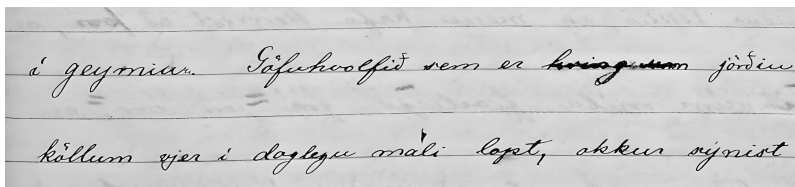 í geymiur. Göfuhvolfið sem er kring um jörðiu
köllum vjer í daglegu máli lopt, okkur sýnist